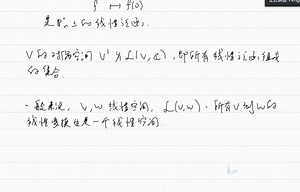 f ↦ f(0)
是 P_n 上的线性泛函.
V 的对偶空间 V' 为 L(V, C), 即所有线性泛函组成
的集合.
一般来说, V, W 线性空间, L(V,W): 所有 V 到 W 的
线性变换也是一个线性空间.